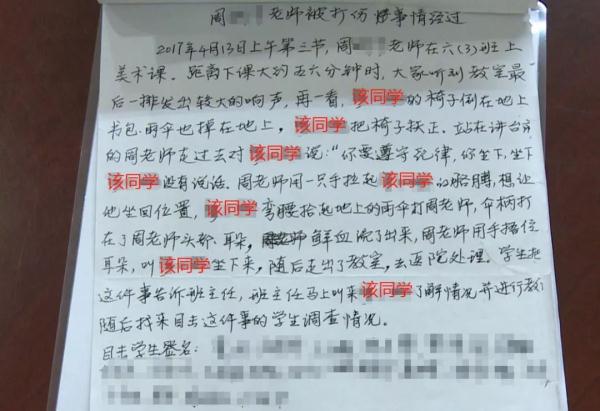 周 老师被打伤 事情经过
2017年4月13日上午第三节,周 老师在六(3)班上
美术课。距离下课大约五六分钟时,大家听到教室最
后一排发出较大的响声,再一看,该同学的椅子倒在地上
书包雨伞也掉在地上,该同学把椅子扶正。站在讲台旁
的周老师走过去对该同学说:“你要遵守纪律,你坐下,坐下
该同学没有说话。周老师用一只手拉起该同学的胳膊,想让
他坐回位置,该同学弯腰拾起地上的雨伞打周老师,伞柄打
在了周老师头部、耳朵,鲜血流了出来,周老师用手捂住
耳朵,叫该同学坐下来,随后走出了教室,去医院处理。学生把
这件事告诉班主任,班主任马上叫来该同学了解情况并进行教
随后找来目击这件事的学生调查情况。
目击学生签名: